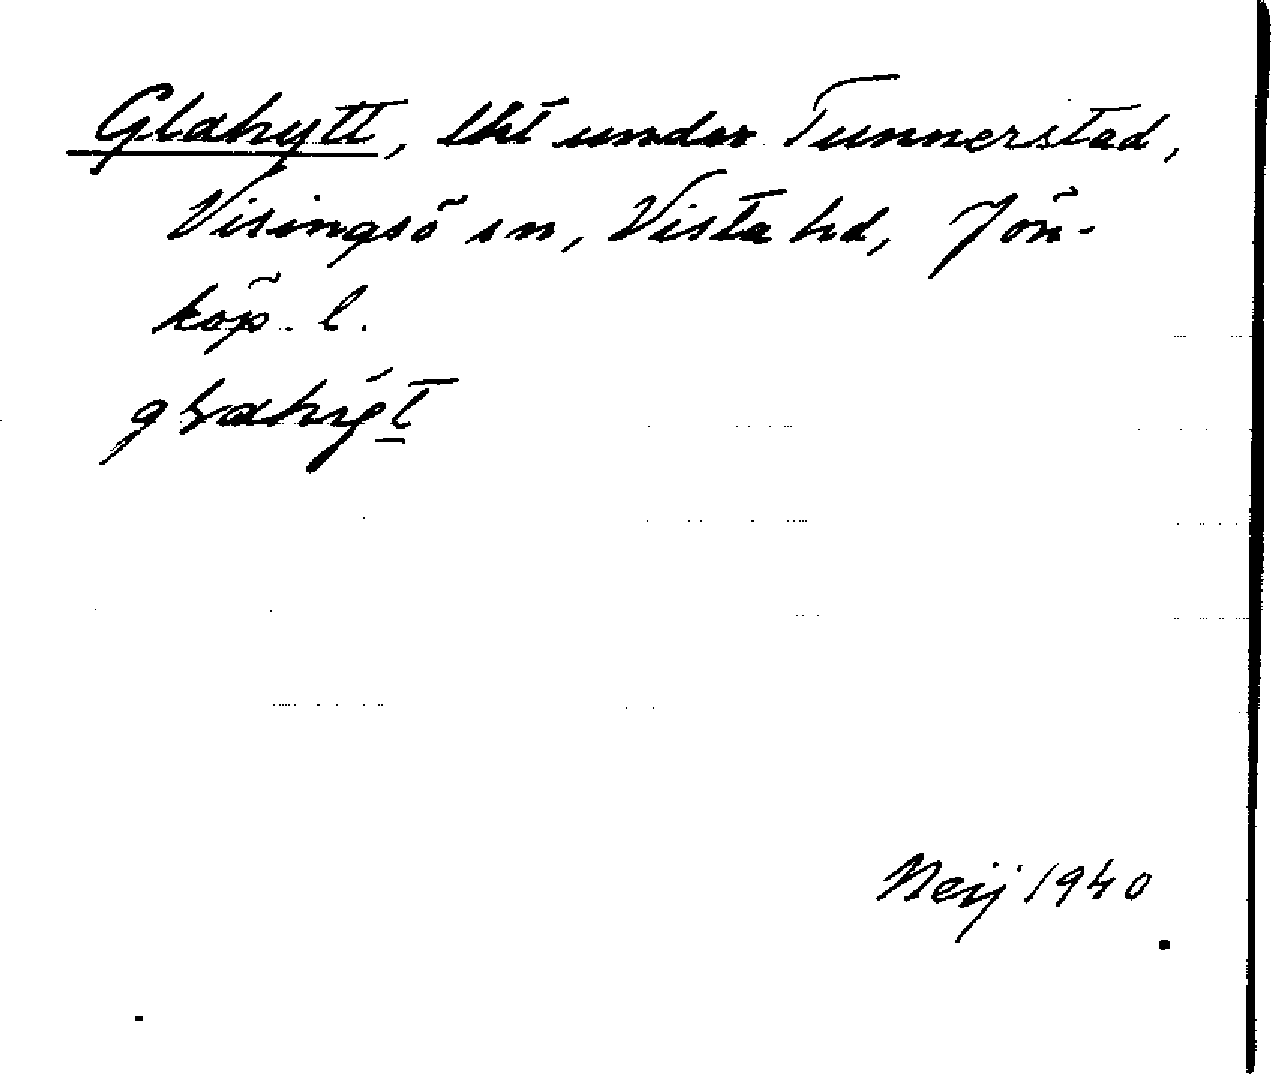 Glahytt, lht under Tunnerstad,
Visingsö sn, Vista hd, Jön-
köp. l.
Neij 1940